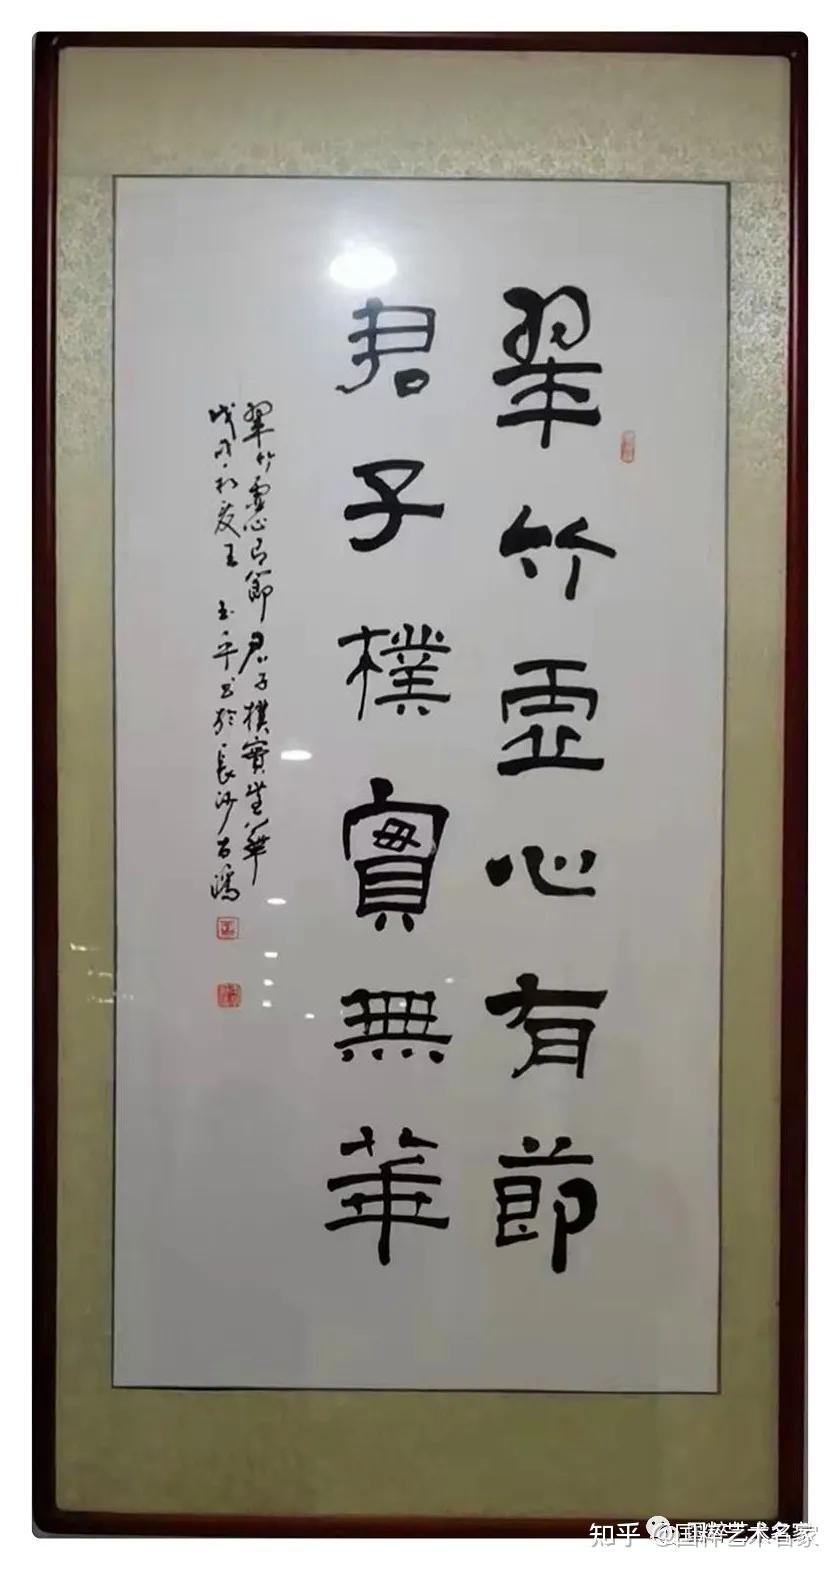 翠竹虛心有節
君子樸實無華
翠竹虛心有節君子樸實無華
戊戌 王玉平书於長沙
知乎 @国粹艺术名家